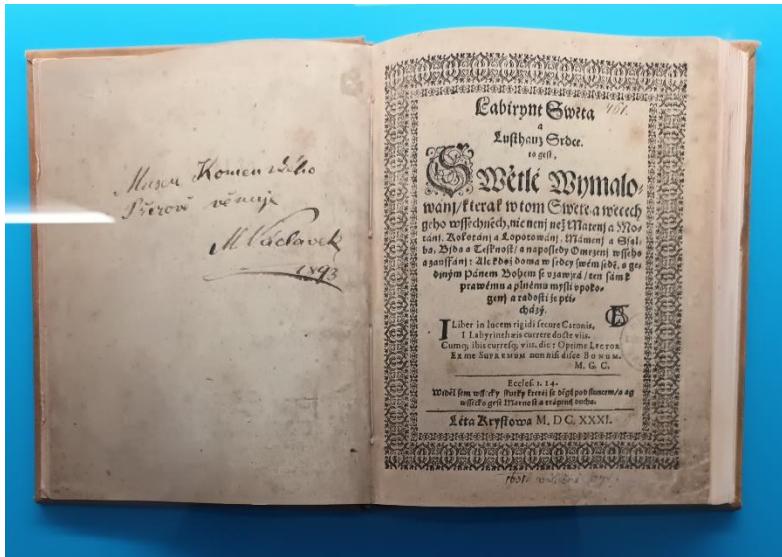 Museu Komenského
Přerově věnuje
M Václavek
1893
461.
Labirynt Swěta
a
Lusthauz Srdce.
to gest,
SWětlé Wymalo-
wánj/ kterak w tom Swětě a wěcech
geho wssechněch, nic nenj než Matenj a Mo-
tánj, Kolotánj a Lopotowánj, Mámenj a Ssal-
ba, Bjda a Tesknost/ a naposledy Omrzenj wsseho
a zauffánj: Ale kdož doma w srdcy swém sedě, s ge-
diným Pánem Bohem se vzawjrá/ ten sám k
prawému a plnému mysli vpoko-
genj a radosti že při-
cházý.
I Liber in lucem rigidi secure Catonis,
I Labyrinthæis currere docte viis.
Cumq; ibis curresq; viis, dic: Optime LECTOR
Ex me SUPREMUM non nisi disce BONUM.
M. G. C.
Eccles. 1. 14.
Widěl sem wssecky skutky kteréž se děgj pod sluncem/ a ag
wssecko gest Marnost a trápenj ducha.
Léta Krystowa M. DC. XXXI.
1631